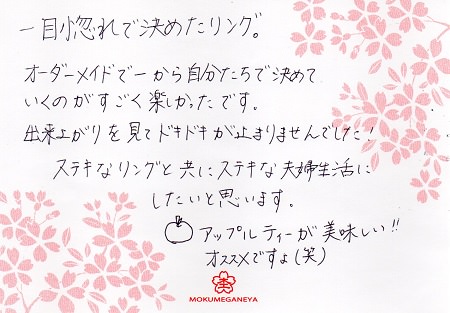 一目惚れで決めたリング。
オーダーメイドで一から自分たちで決めて
いくのがすごく楽しかったです。
出来上がりを見てドキドキが止まりませんでした!
ステキなリングと共にステキな夫婦生活に
したいと思います。
アップルティーが美味しい!!
オススメですよ(笑)
MOKUMEGANEYA